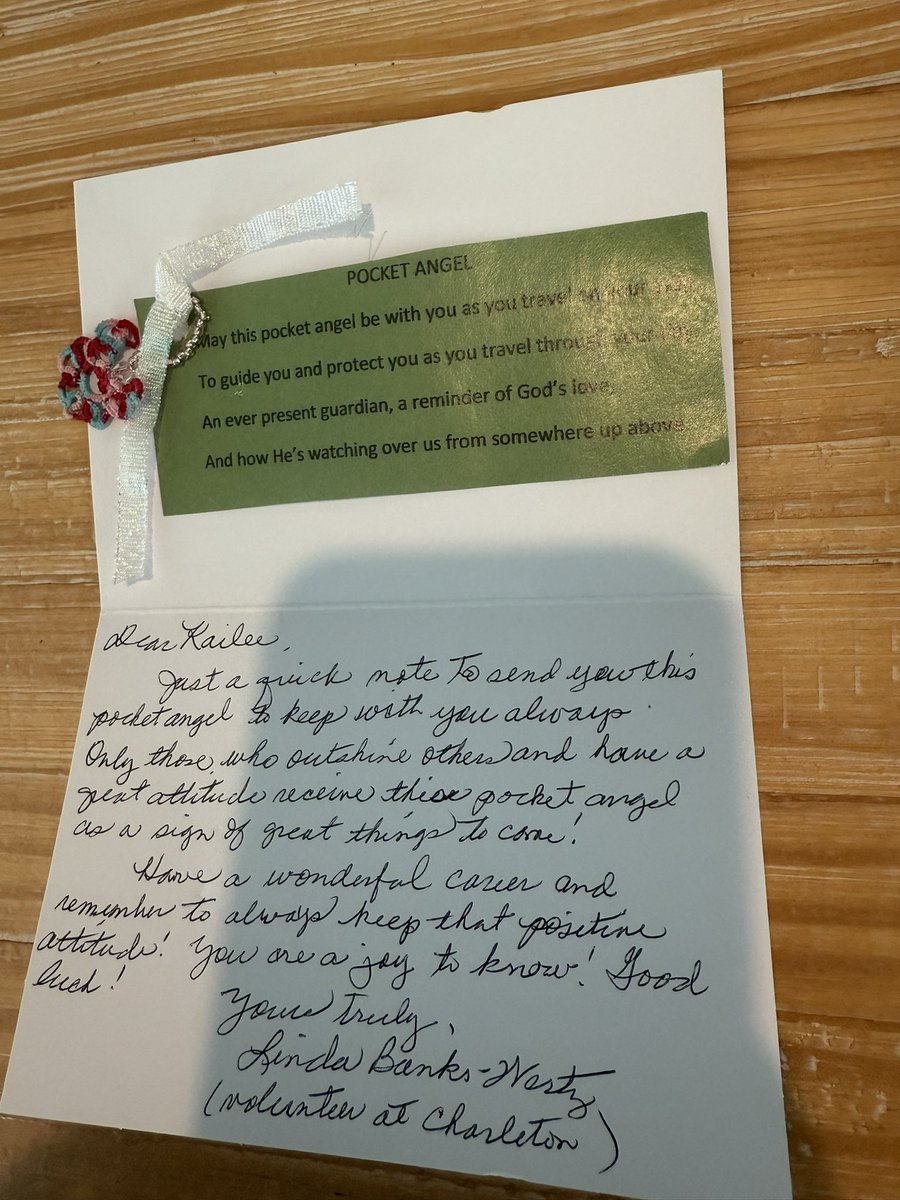 POCKET ANGEL
May this pocket angel be with you as you travel on your way
To guide you and protect you as you travel through your
An ever present guardian, a reminder of God's love
And how He's watching over us from somewhere up above.
Dear Kailee,
Just a quick note to send you this
pocket angel to keep with you always.
Only those who outshine others and have a
great attitude receive this pocket angel
as a sign of great things to come!
Have a wonderful career and
remember to always keep that positive
attitude! You are a joy to know! Good
luck!
Yours truly,
Linda Banks-
(volunteer at Charleton)